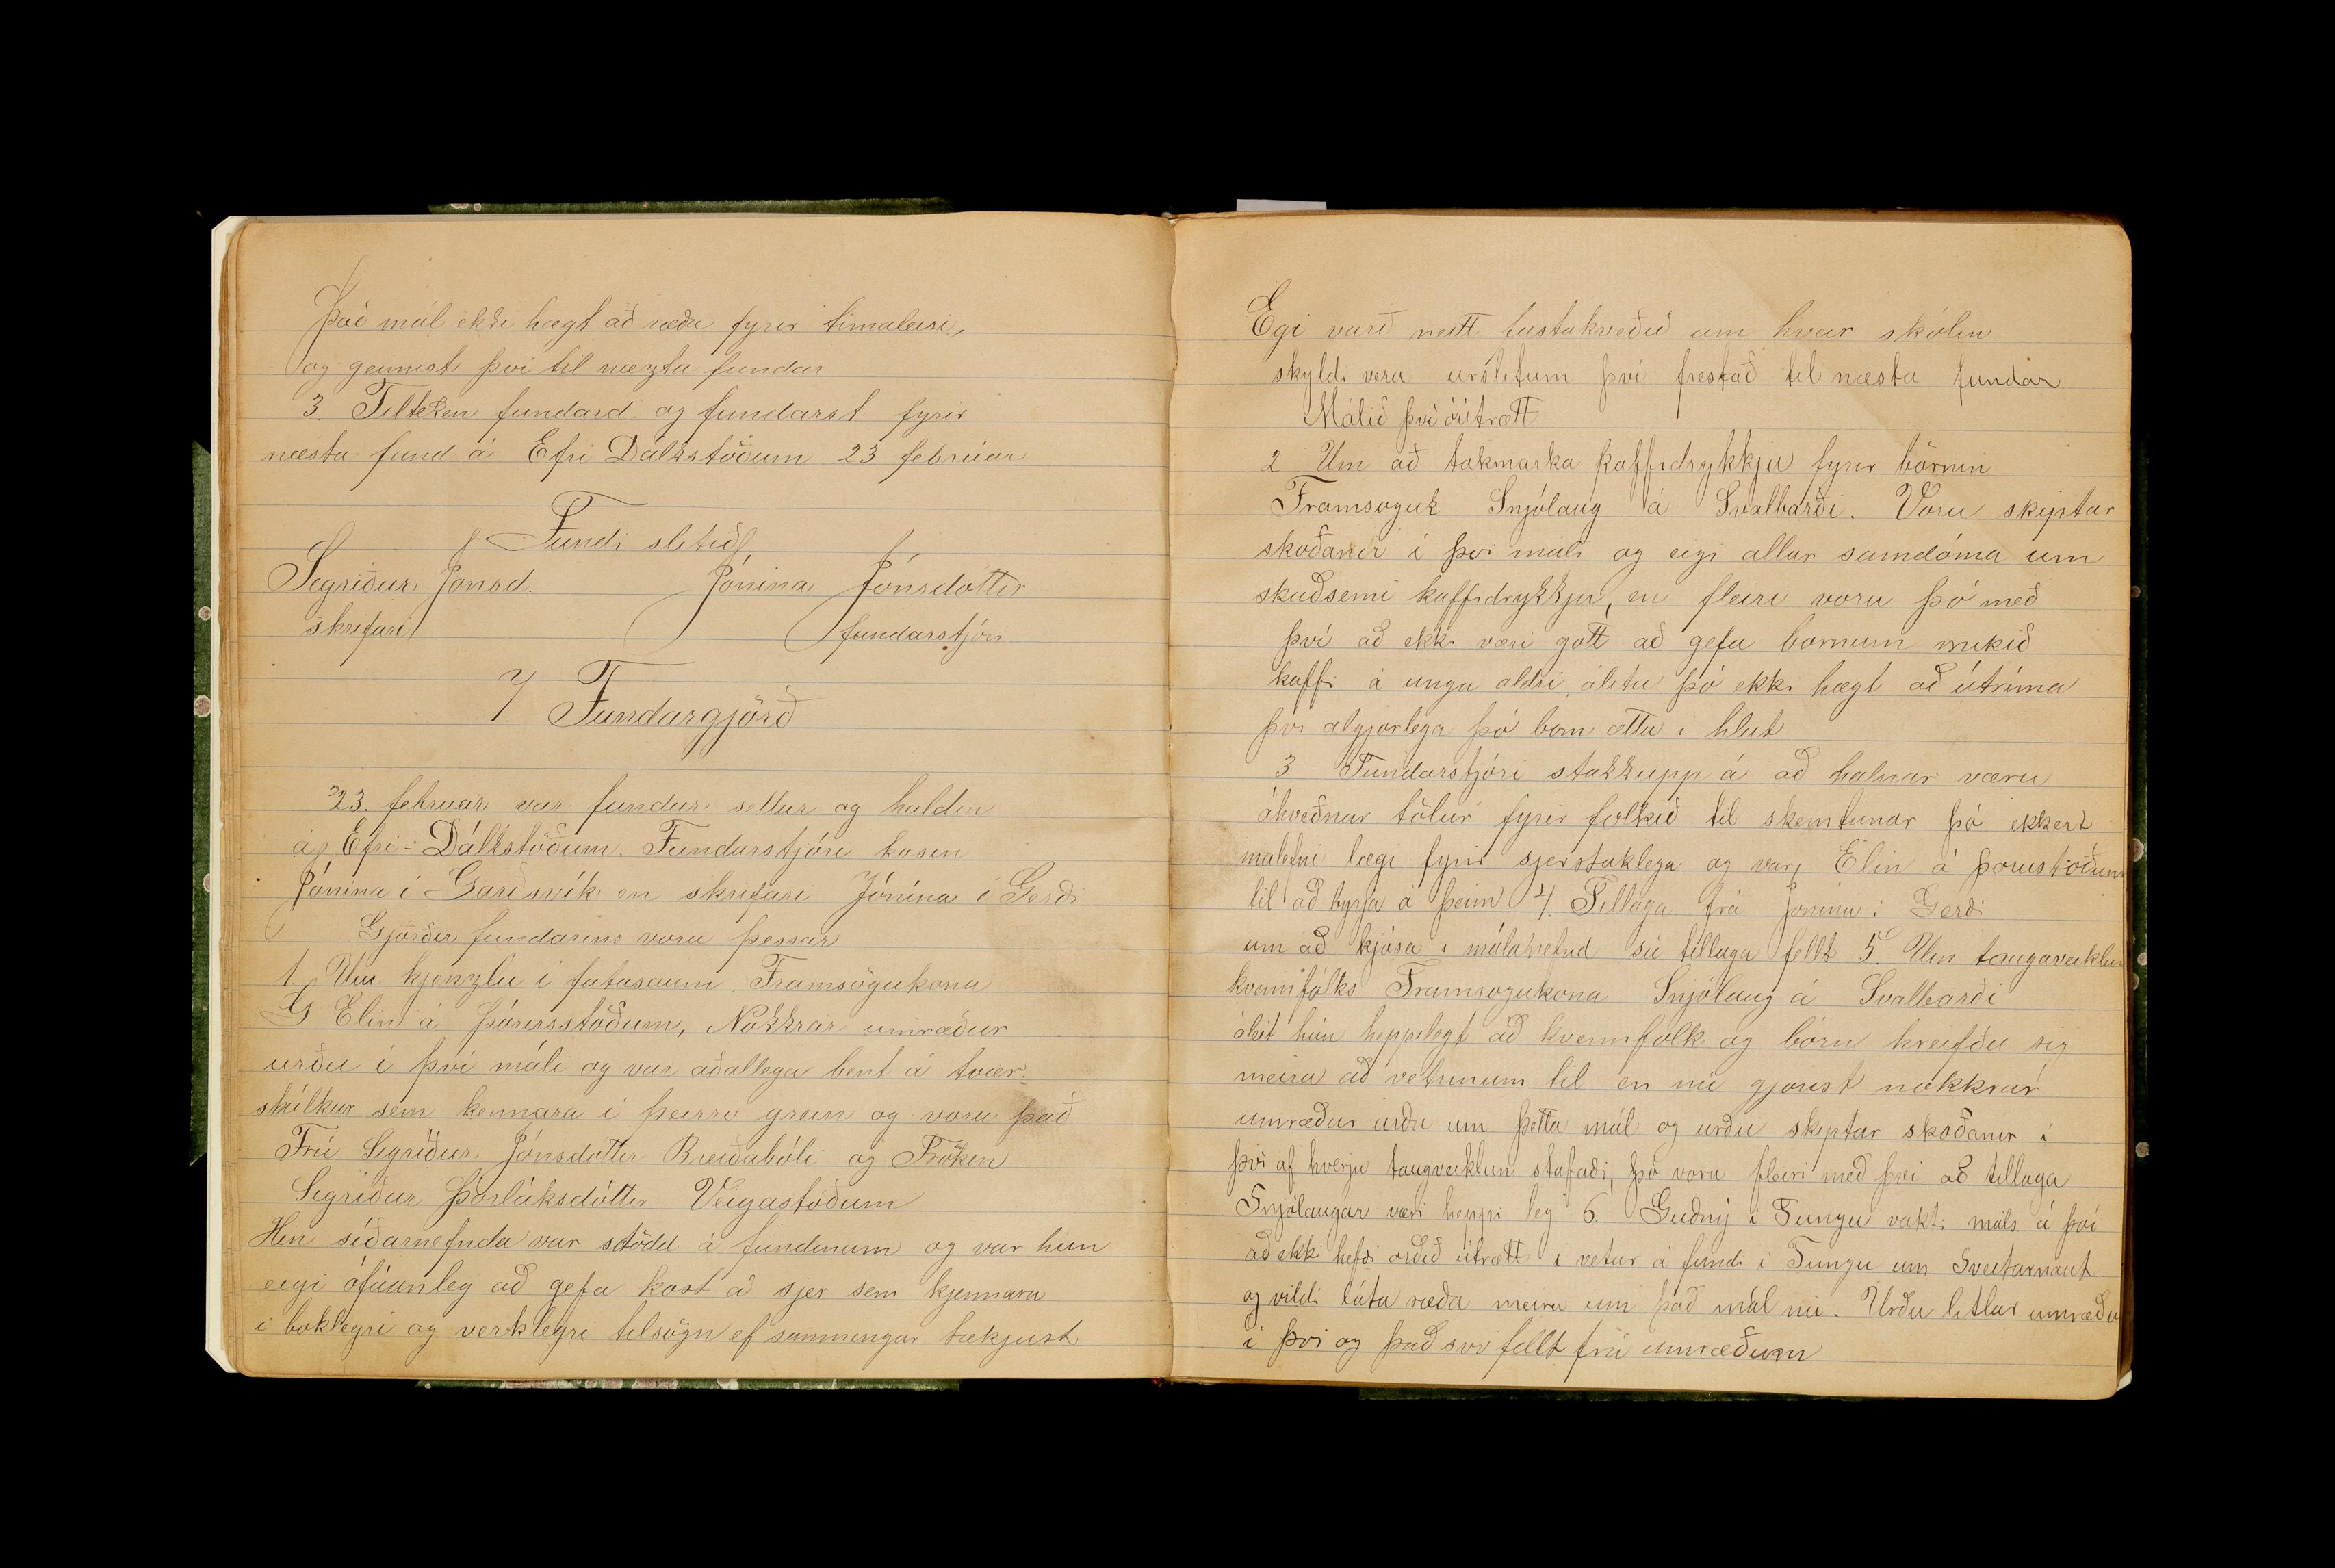 Það mál ekki hægt að ræða fyrir timaleisi,
og geimist því til næzta fundar
3. Tiltekin fundard. og fundarst fyrir
næsta fund á Efri Dálkstöðum 23 februar
Fundi slitið
Segriður Jónsd. Jónína Jónsdóttir
skrifari fundarstjóri
7. Fundargjörð
23. februar var fundur settur og haldin
á Efri-Dálkstöðum. Fundarstjóri kosin
Jónína í Garðsvík en skrifari Jónína í Gerði
Gjörðir fundarins voru þessar
1. Um kjenzlu í fatasaum. Framsögukona
Elin á Þórisstöðum, Nokkrar umræður
urðu í því máli og var aðallega bent á tvær
stúlkur sem kennara í þeirri grein og voru það
Frú Segriður Jónsdóttir Breiðabóli og Fröken
Segriður Þorláksdóttir Veigastöðum
Hin síðarnefnda var stödd á fundinum og var hun
eigi ófáanleg að gefa kost á sjer sem kjennara
í boklegri og verklegri tilsögn ef samningar tækjust
Egi varð neitt fastakveðið um hvar skólin
skyldi vera urslitum því frestað til næsta fundar
Málið því óútrætt
2 Um að takmarka kaffidrykkju fyrir börnin
Framsoguk Snjólaug á Svalbarði. Voru skiptar
skoðanir í því máli og eigi allar samdóma um
skaðsemi kaffidrykkju, en fleiri voru þó með
því að ekki væri gott að gefa bornum mikið
kaffi á unga aldri, álitu þó ekki hægt að útrima
því algjorlega þó born ættu í hlut
3 Fundarstjóri stakk upp á að halnar væru
ákveðnar tölur fyrir folkið til skemtunar þó ekkert
malefni lægi fyrir sjerstaklega og var Elin á Þorustöðum
til að byrja á þeim 4. Tillaga frá Jonínu í Gerði
um að kjósa í málanefnd sú tillaga fellt 5. Um taugaveiklun
kvennfólks Framsogukona Snjólaug á Svalbarði
áleit hún heppilegt að kvennfolk og börn hreifðu sig
meira að vetrinum til en nú gjorist nokkrar
umræður urðu um þetta mál og urðu skiptar skoðanir í
því af hverju taugveiklun stafaði, þó voru fleiri með því að tillaga
Snjólaugar væri heppi leg 6. Guðný í Tungu vakti máls á því
að ekki hefði orðið útrætt í vetur á fundi í Tungu um Sveitarnaut
og vildi láta ræða meira um það mál nú. Urðu litlar umræðu
í því og það svo fellt frá umræðum